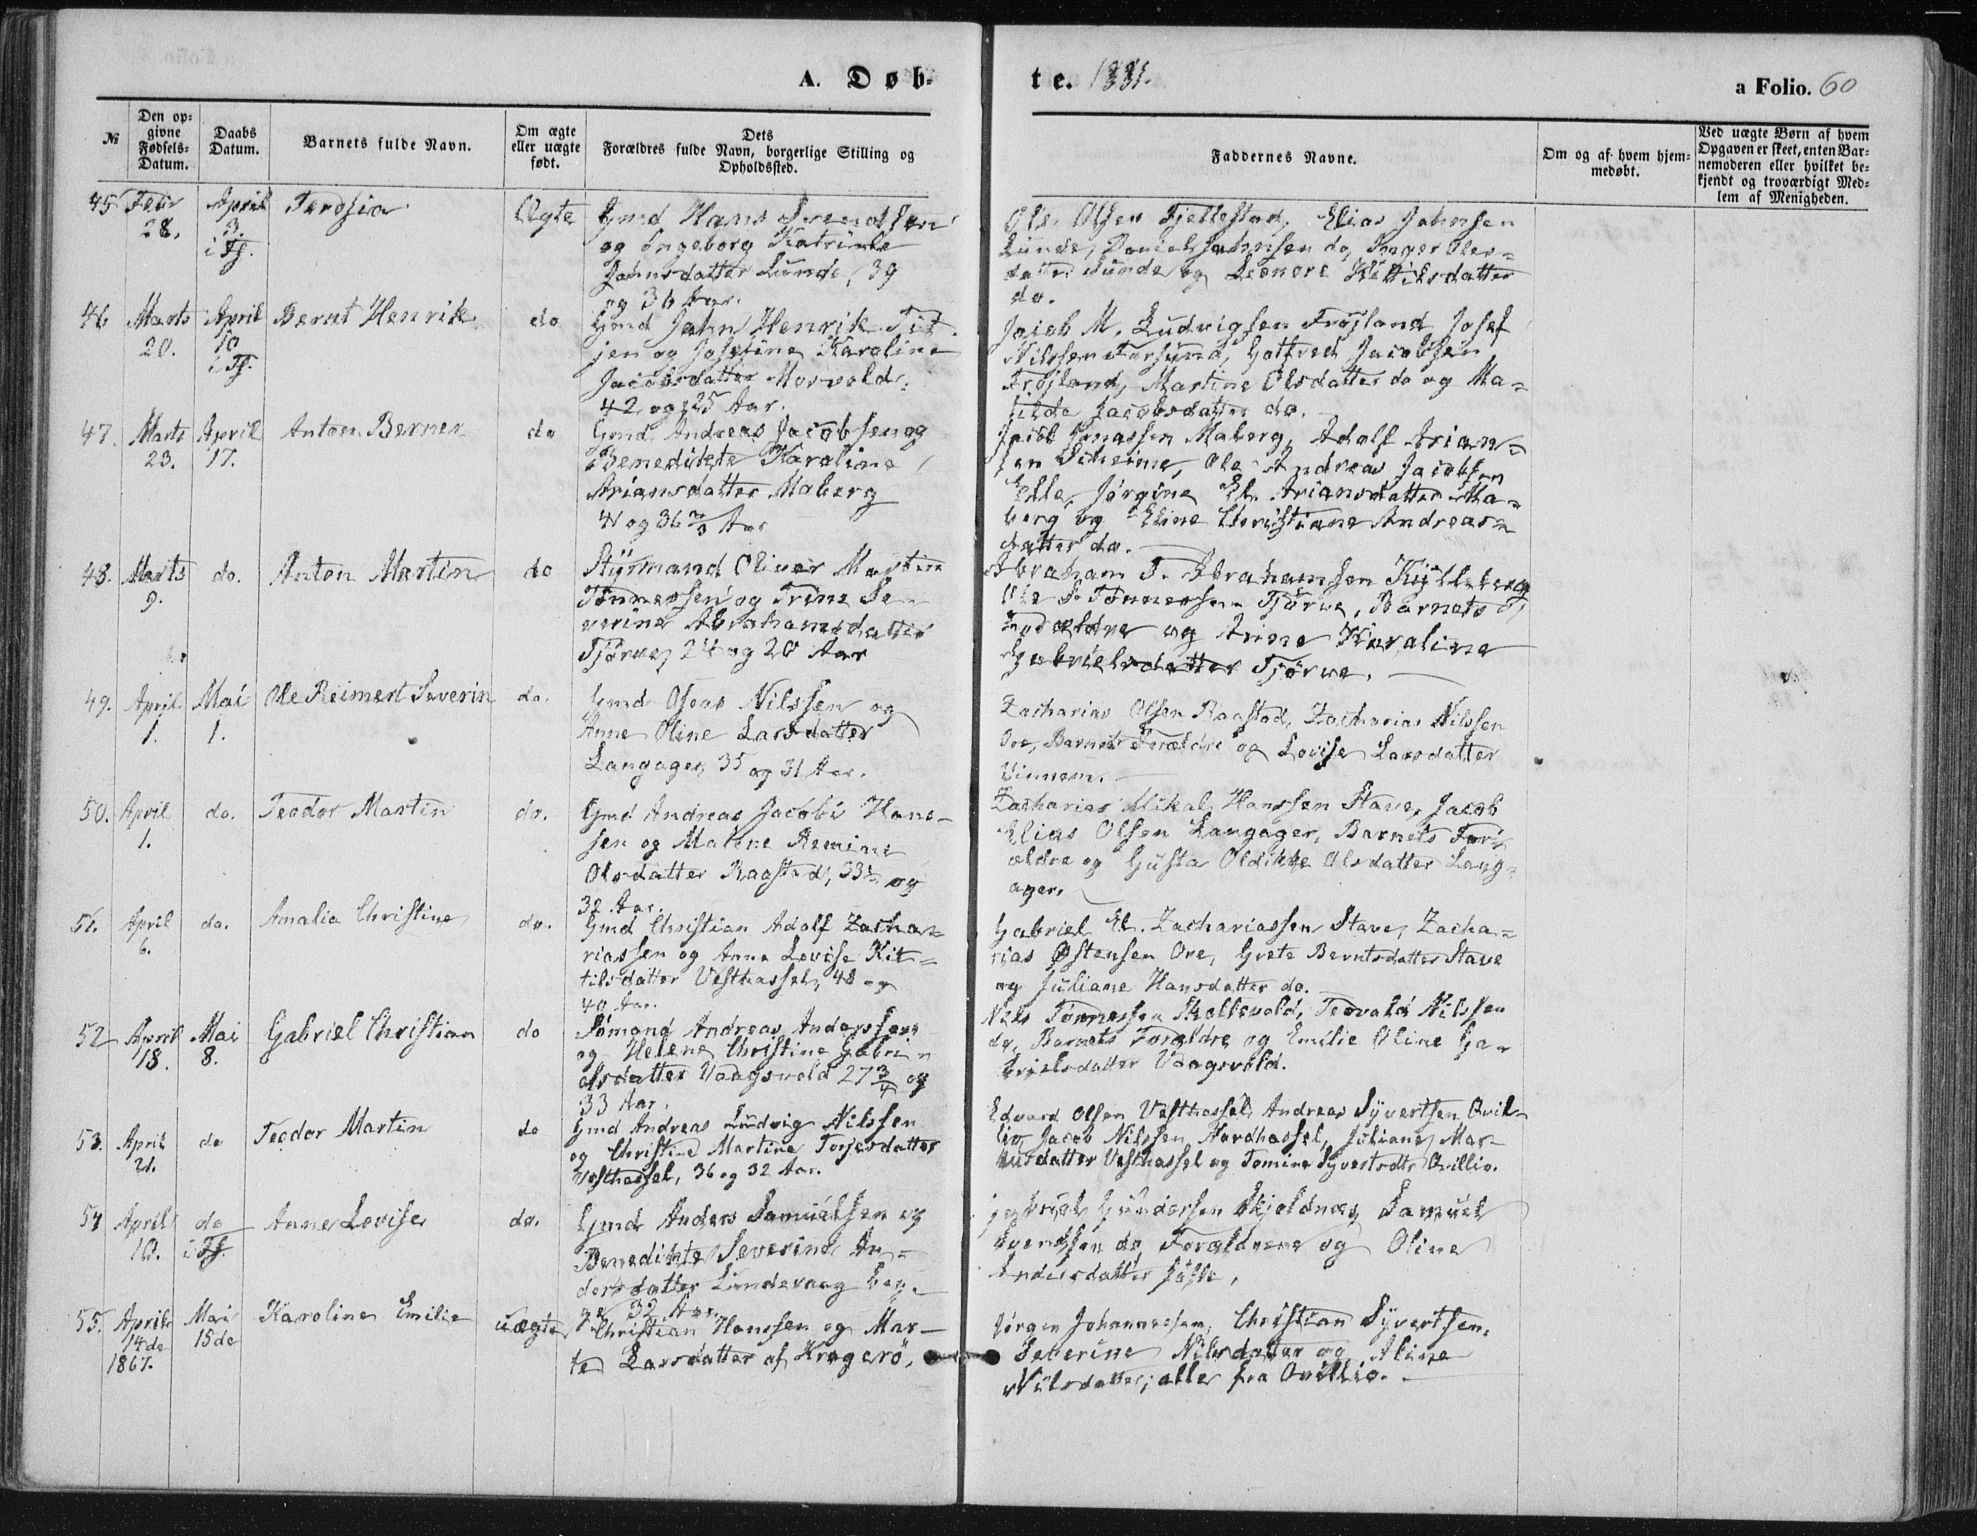 A. Døb-
te. 1881.
a Folio. 60
№
Den op-
givne
Fødsels-
Datum.
Daabs
Datum.
Barnets fulde Navn.
Om ægte
eller uægte
født.
Dets
Forældres fulde Navn, borgerlige Stilling og
Opholdssted.
Faddernes Navne.
Om og af hvem hjem-
medøbt.
Ved uægte Børn af hvem
Opgaven er skeet, enten Bar-
nemoderen eller hvilket be-
kjendt og troværdigt Med-
lem af Menigheden.
45 Febr
28.
April
3.
i Tj.
Terosia
Ægte
Gmd Hans Svendsen
og Ingeborg Katrine
Jahnsdatter Lunde, 39
og 36 Aar.
Ole Olsen Fjellestad, Elias Jahnsen
Lunde, Daniel Jahnsen do, Inger Oles-
datter Lunde og Leonore Kittilsdatter
do.
46 Marts
20.
April
10
i Tj.
Bernt Henrik
do
Gmd Jahn Henrik Tit-
jen og Josefine Karoline
Jacobsdatter Morvold,
42 og 25 Aar.
Jacob M. Ludvigsen Frøjland, Josef
Nilssen Farsund, Gotfred Jacobsen
Frøjland, Martine Olsdatter do og Ma-
tilde Jacobsdatter do.
47. Marts
23.
April
17.
Anton Berner
do
Gmd Andreas Jacobsen og
Benedikte Karoline
Ariansdatter Maberg
41 og 36 2/3 Aar
Jacob Jonassen Maberg, Adolf Arian-
sen Ole Andreas Jacobsen
Jørgine El. Ariansdatter Ma-
berg og Eline Christiane Andreas-
datter do.
48. Marts
9.
do.
Anton Martin
do
Styrmand Oliver Martin
Tønnessen og Trine Se-
verine Abrahamsdatter
Tjørve, 24 og 20 Aar
Abraham T. Abrahamsen
Ole S. Tønnessen Tjørve, Barnets
Forældre og Anne Karoline
Gabrielsdatter Tjørve.
49. April
1.
Mai
1.
Ole Reimert Severin
do.
Gmd Oseas Nilssen og
Anne Oline Larsdatter
Langager, 35 og 31 Aar.
Zacharias Olsen Raastad, Zacharias Nilssen
Ore, Barnets Forældre og Lovise Larsdatter
Vinnem.
50. April
1.
do.
Teodor Martin
do.
Gmd Andreas Jacobi Hans-
sen og Malene Remine
Olsdatter Raastad, 33½ og
32 Aar.
Zacharias Mikal Hanssen Stave, Jacob
Elias Olsen Langager, Barnets For-
ældre og Gusta Oldikke Olsdatter Lang-
ager.
51. April
6.
do.
Amalia Christine
do.
Gmd Christian Adolf Zacha-
riassen og Anne Lovise Kit-
tilsdatter Vesthassel, 48 og
40 Aar.
Gabriel El. Zachariassen Stave, Zacha-
rias Østensen Ore, Grete Berntsdatter Stave
og Juliane Hansdatter do.
52 April
18.
Mai
8.
Gabriel Christian
do
Sømand Andreas Anderssen
og Helene Christine Gabri-
elsdatter Vaagsvold 27 3/4 og
33 Aar.
Nils Tønnessen Skollevold, Teovald Nilssen
do, Barnets Forældre og Emilie Oline Ga-
brielsdatter Vaagsvold.
53. April
21.
do
Teodor Martin
do
Gmd Andreas Ludvig Nilssen
og Christine Martine Torjesdatter
Vesthassel, 36 og 32 Aar.
Edvard Olsen Vesthassel, Andreas Syvertsen Qvil-
lio, Jacob Nilssen Nordhassel, Juliane Mar-
kusdatter Vesthassel og Tomine Syvertsdtr Qvillio.
54 April
20.
do
i Tj.
Anne Lovise
do.
Gmd Anders Samuelsen og
Benedikte Severine An-
dersdatter Lundevaag beg-
ge 32 Aar.
Gundersen Skjoldnæs, Samuel
Svendsen do, Forældrene og Oline
Andersdatter
55. April
14de
1867.
Mai
15de
Karoline Emilie
Uægte
Christian Hanssen og Mar-
te Larsdatter af Kragerö.
Jørgen Johannessen, Christian Syvertsen,
Severine Nilsdatter og Aline
Nilsdatter, alle fra Qvillio.